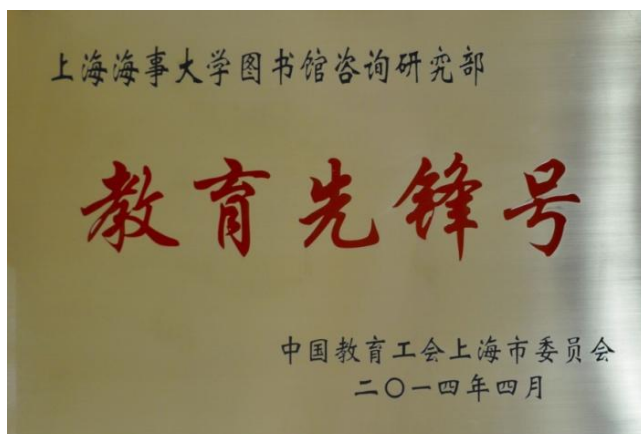 上海海事大学图书馆咨询研究部
教育先锋号
中国教育工会上海市委员会
二〇一四年四月